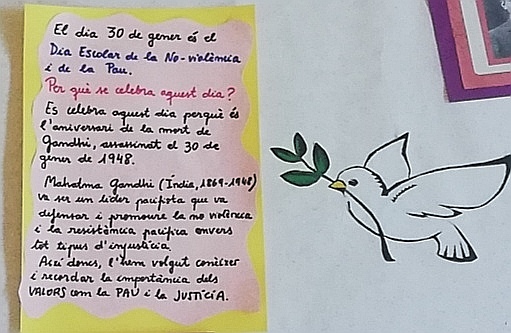 El dia 30 de gener és el
Dia Escolar de la No-violència
i de la Pau.
Per què se celebra aquest dia?
Es celebra aquest dia perquè és
l'aniversari de la mort de
Gandhi, assassinat el 30 de
gener de 1948.
Mahatma Gandhi (Índia, 1869-1948)
va ser un líder pacifista que va
defensar i promoure la no violència
i la resistència pacífica envers
tot tipus d'injustícia.
Així doncs, l'hem volgut conèixer
i recordar la importància dels
VALORS com la PAU i la JUSTÍCIA.